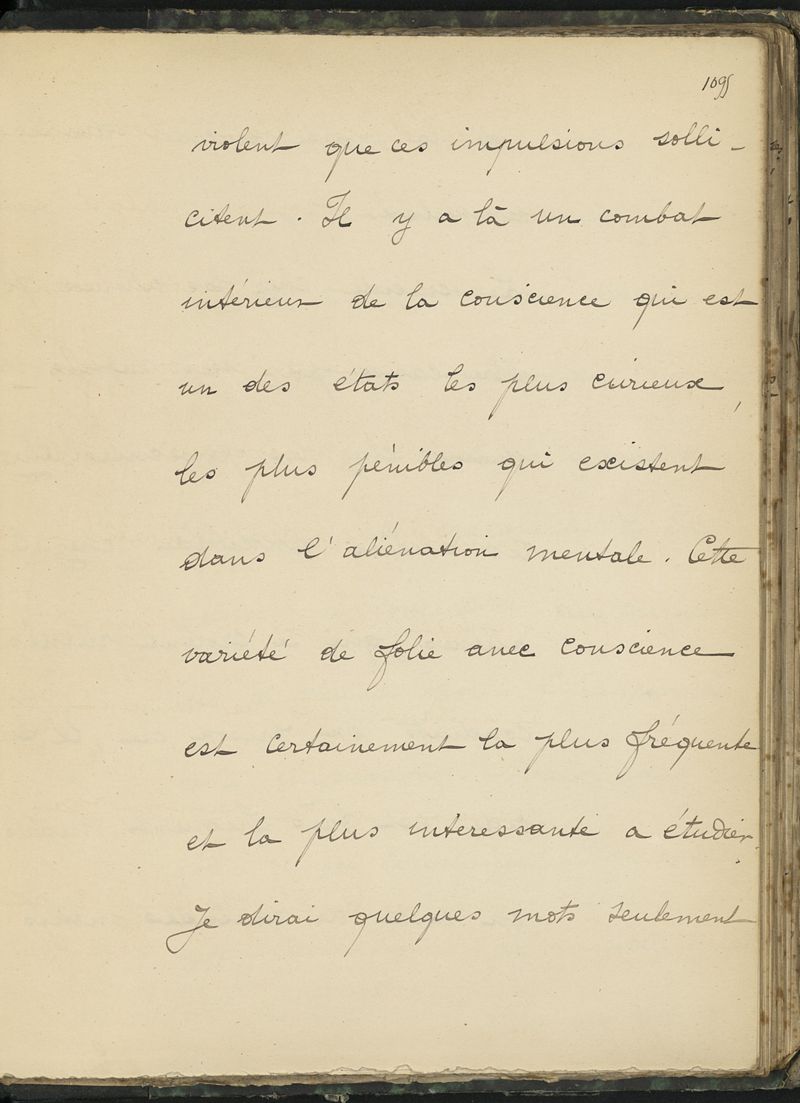 1095
violent que ces impulsions solli-
citent. Il y a là un combat
intérieur de la conscience qui est
un des états les plus curieux,
les plus pénibles qui existent
dans l'aliénation mentale. Cette
variété de folie avec conscience
est certainement la plus fréquente
et la plus interessante a étudier.
Je dirai quelques mots seulement